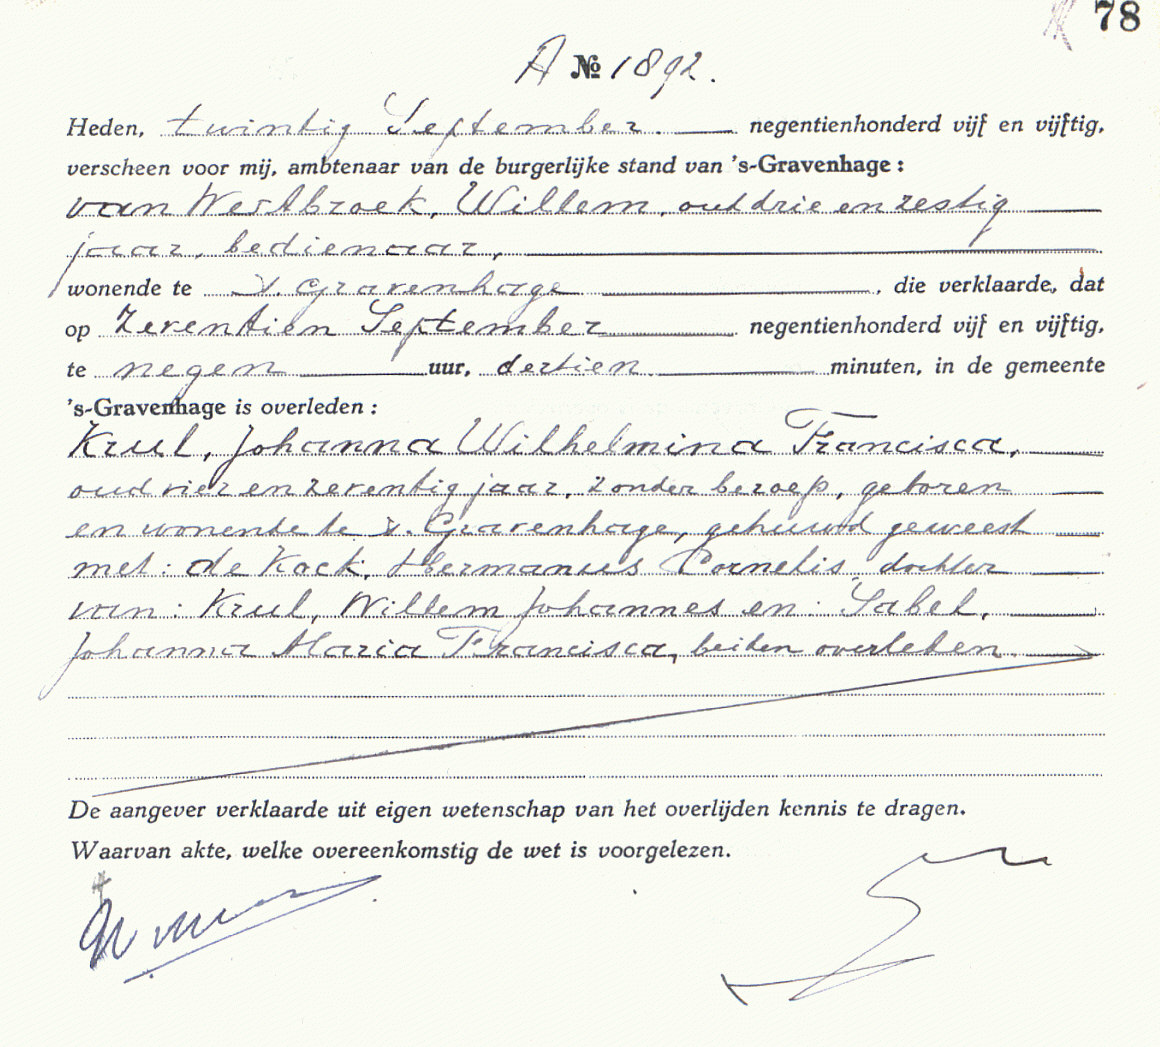 78
A № 1892.
Heden, twintig September. negentienhonderd vijf en vijftig,
verscheen voor mij, ambtenaar van de burgerlijke stand van 's-Gravenhage:
van Westbroek, Willem, oud drie en zestig
jaar, bedienaar,
wonende te 's. Gravenhage, die verklaarde, dat
op Zeventien September negentienhonderd vijf en vijftig,
te negen uur, dertien minuten, in de gemeente
's-Gravenhage is overleden:
Krul, Johanna Wilhelmina Francisca,
oud vier en zeventig jaar, zonder beroep, geboren
en wonende te 's. Gravenhage, gehuwd geweest
met: de Kock, Hermanus Cornelis, dochter
van: Krul, Willem Johannes en: Sabel,
Johanna Maria Francisca, beiden overleden.
De aangever verklaarde uit eigen wetenschap van het overlijden kennis te dragen.
Waarvan akte, welke overeenkomstig de wet is voorgelezen.